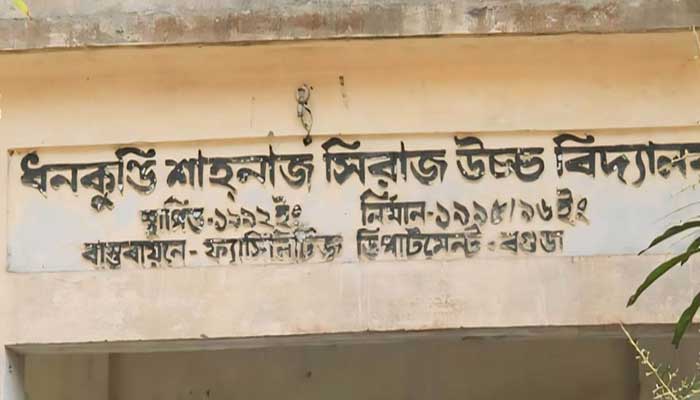 ধনকুন্ডি শাহ্‌নাজ সিরাজ উচ্চ বিদ্যালয়
স্থাপিত-১৯৯২ইং নির্মান-১৯৯৫/৯৬ইং
বাস্তবায়নে- ফ্যাসিলিটিজ ডিপার্টমেন্ট - বগুড়া